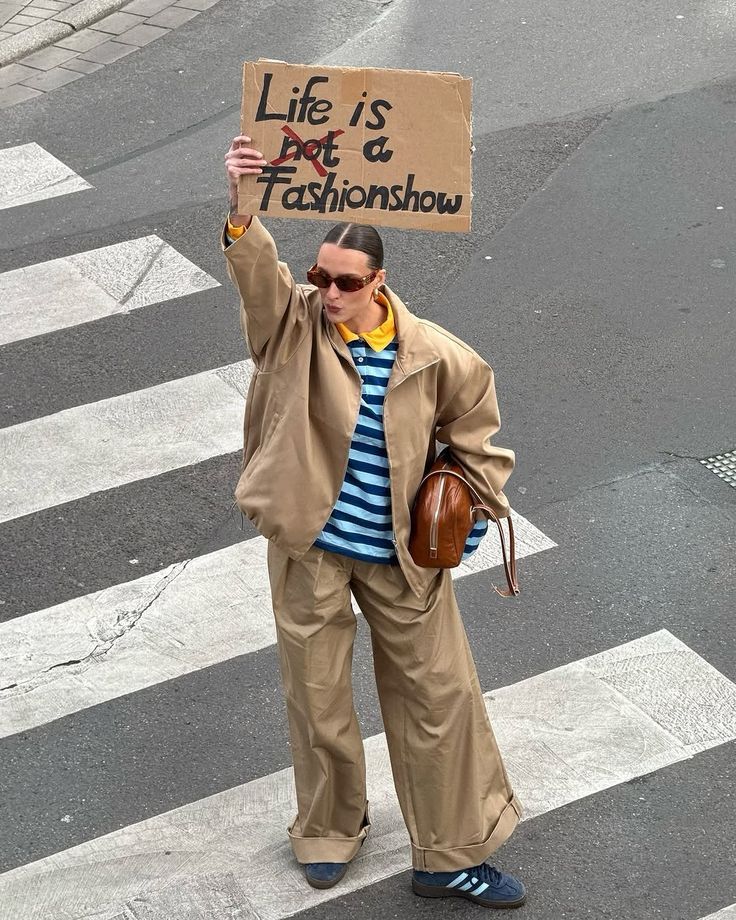 Life is
not a
Fashionshow